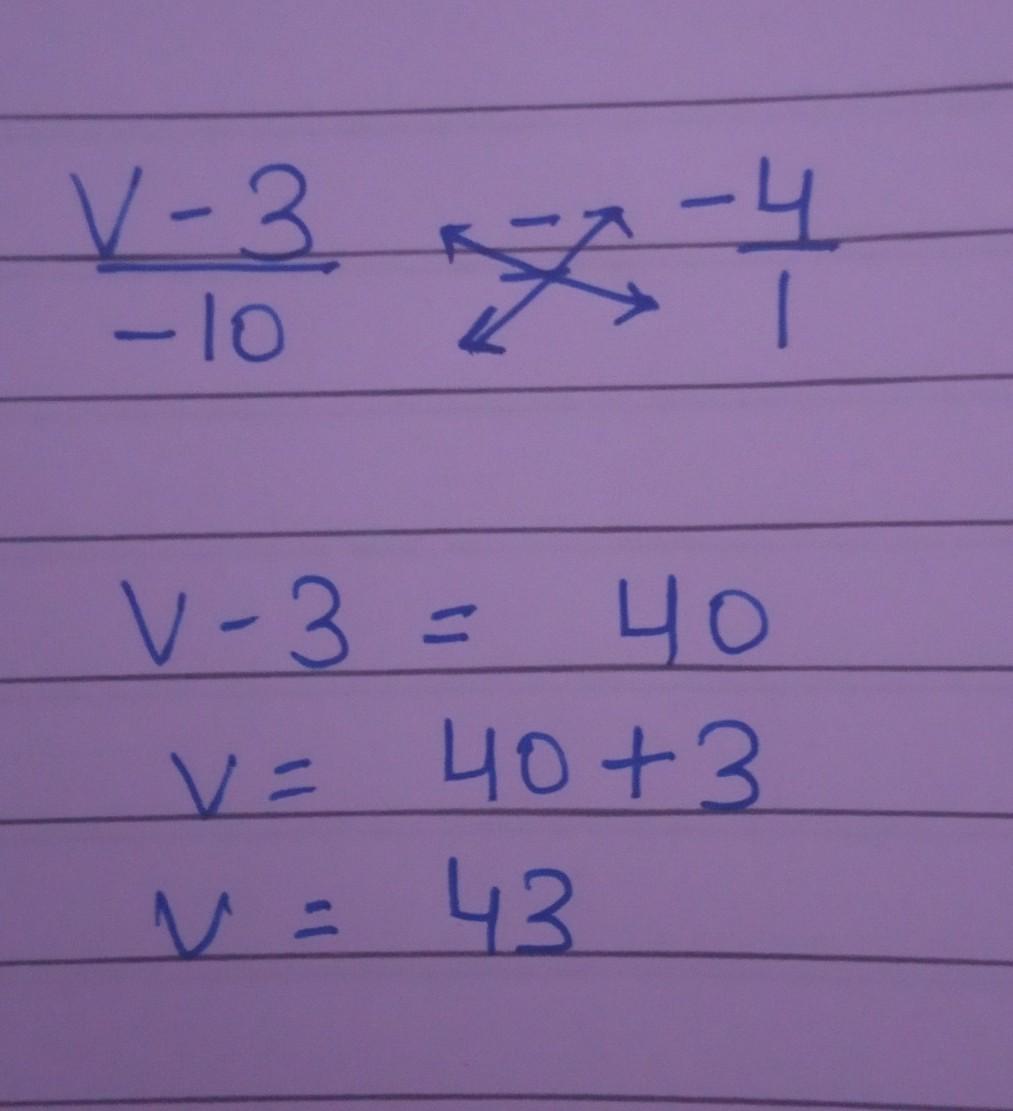 V - 3 = - 4
-10 1
V - 3 = 40
V = 40 + 3
V = 43